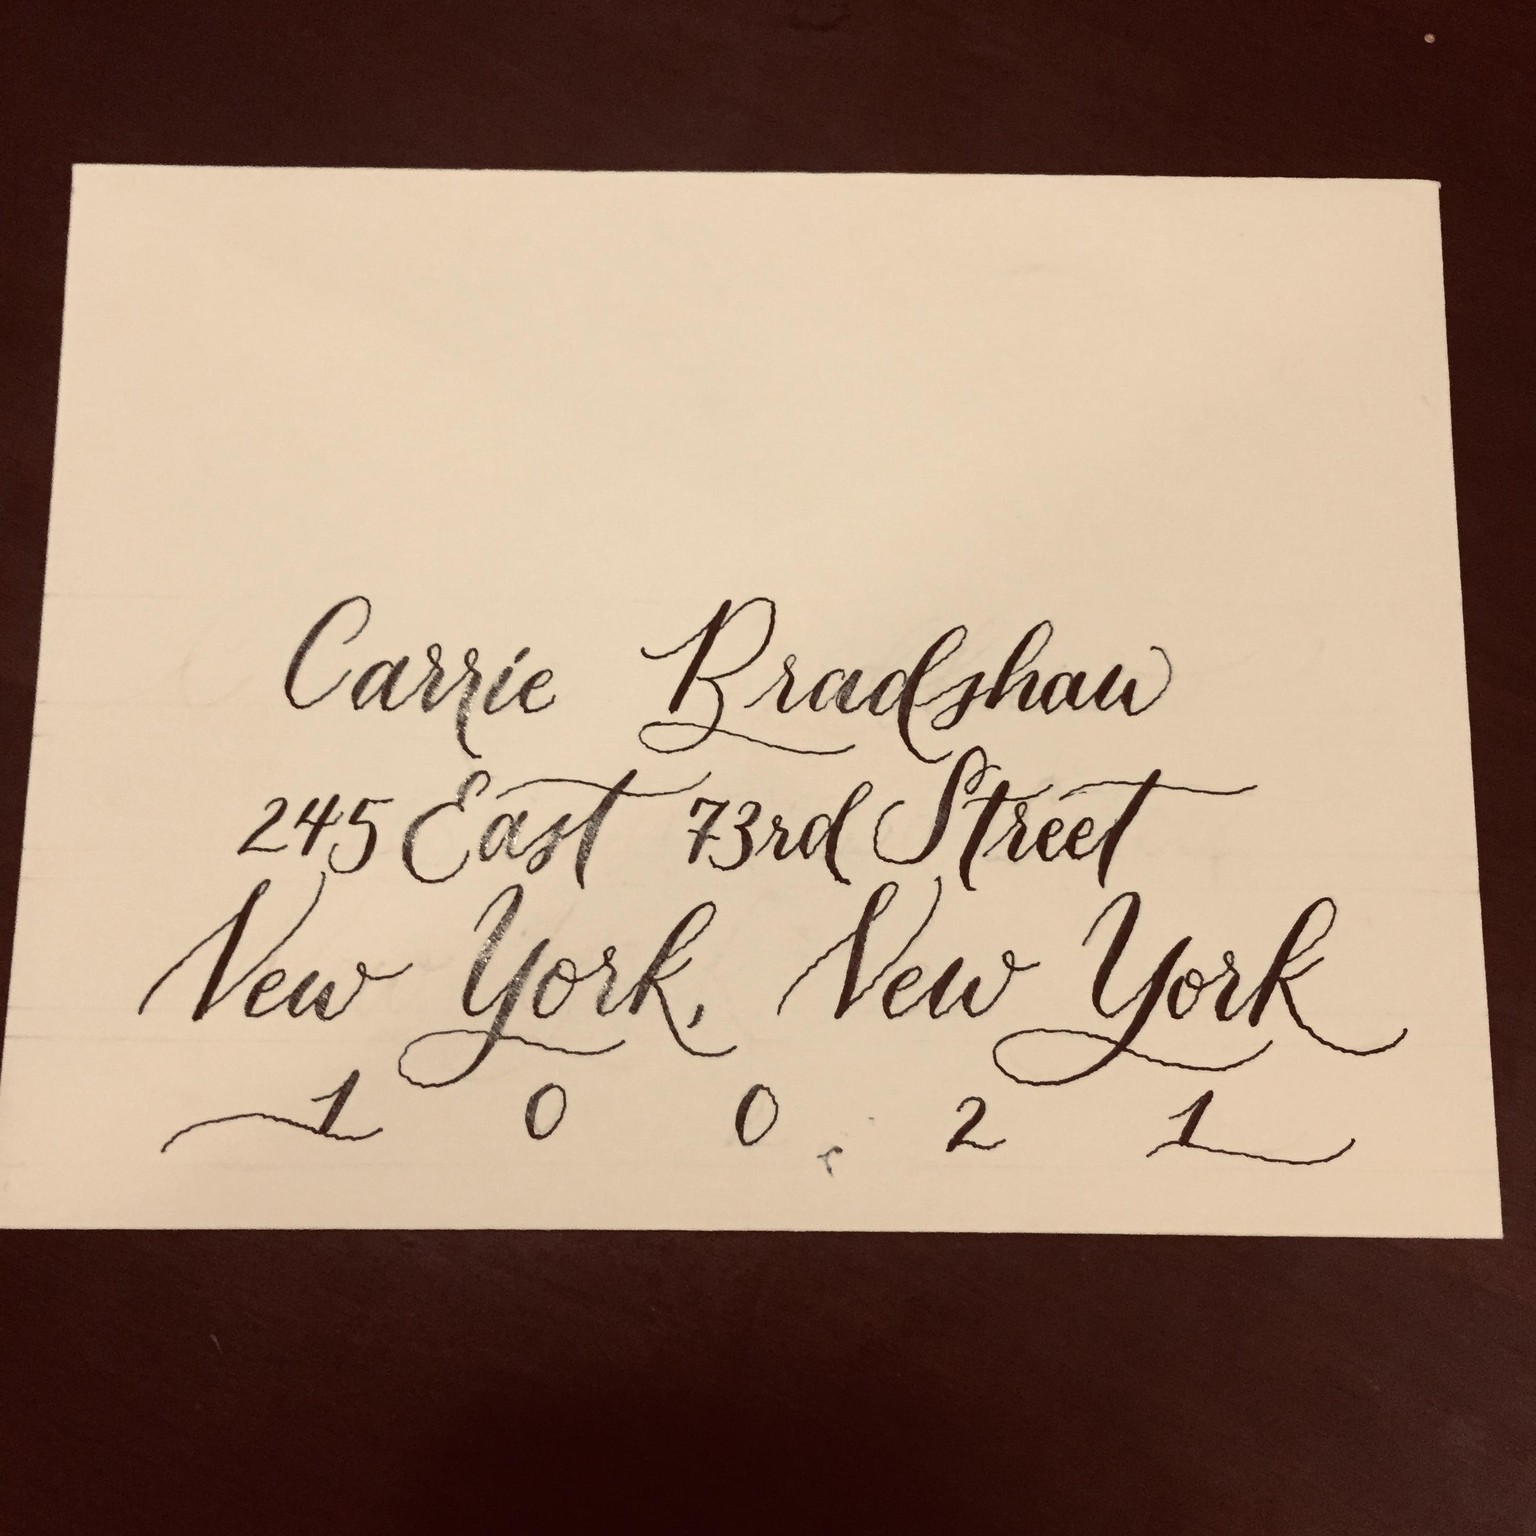 Carrie Bradshaw
245 East 73rd Street
New York, New York
1 0 0 2 1